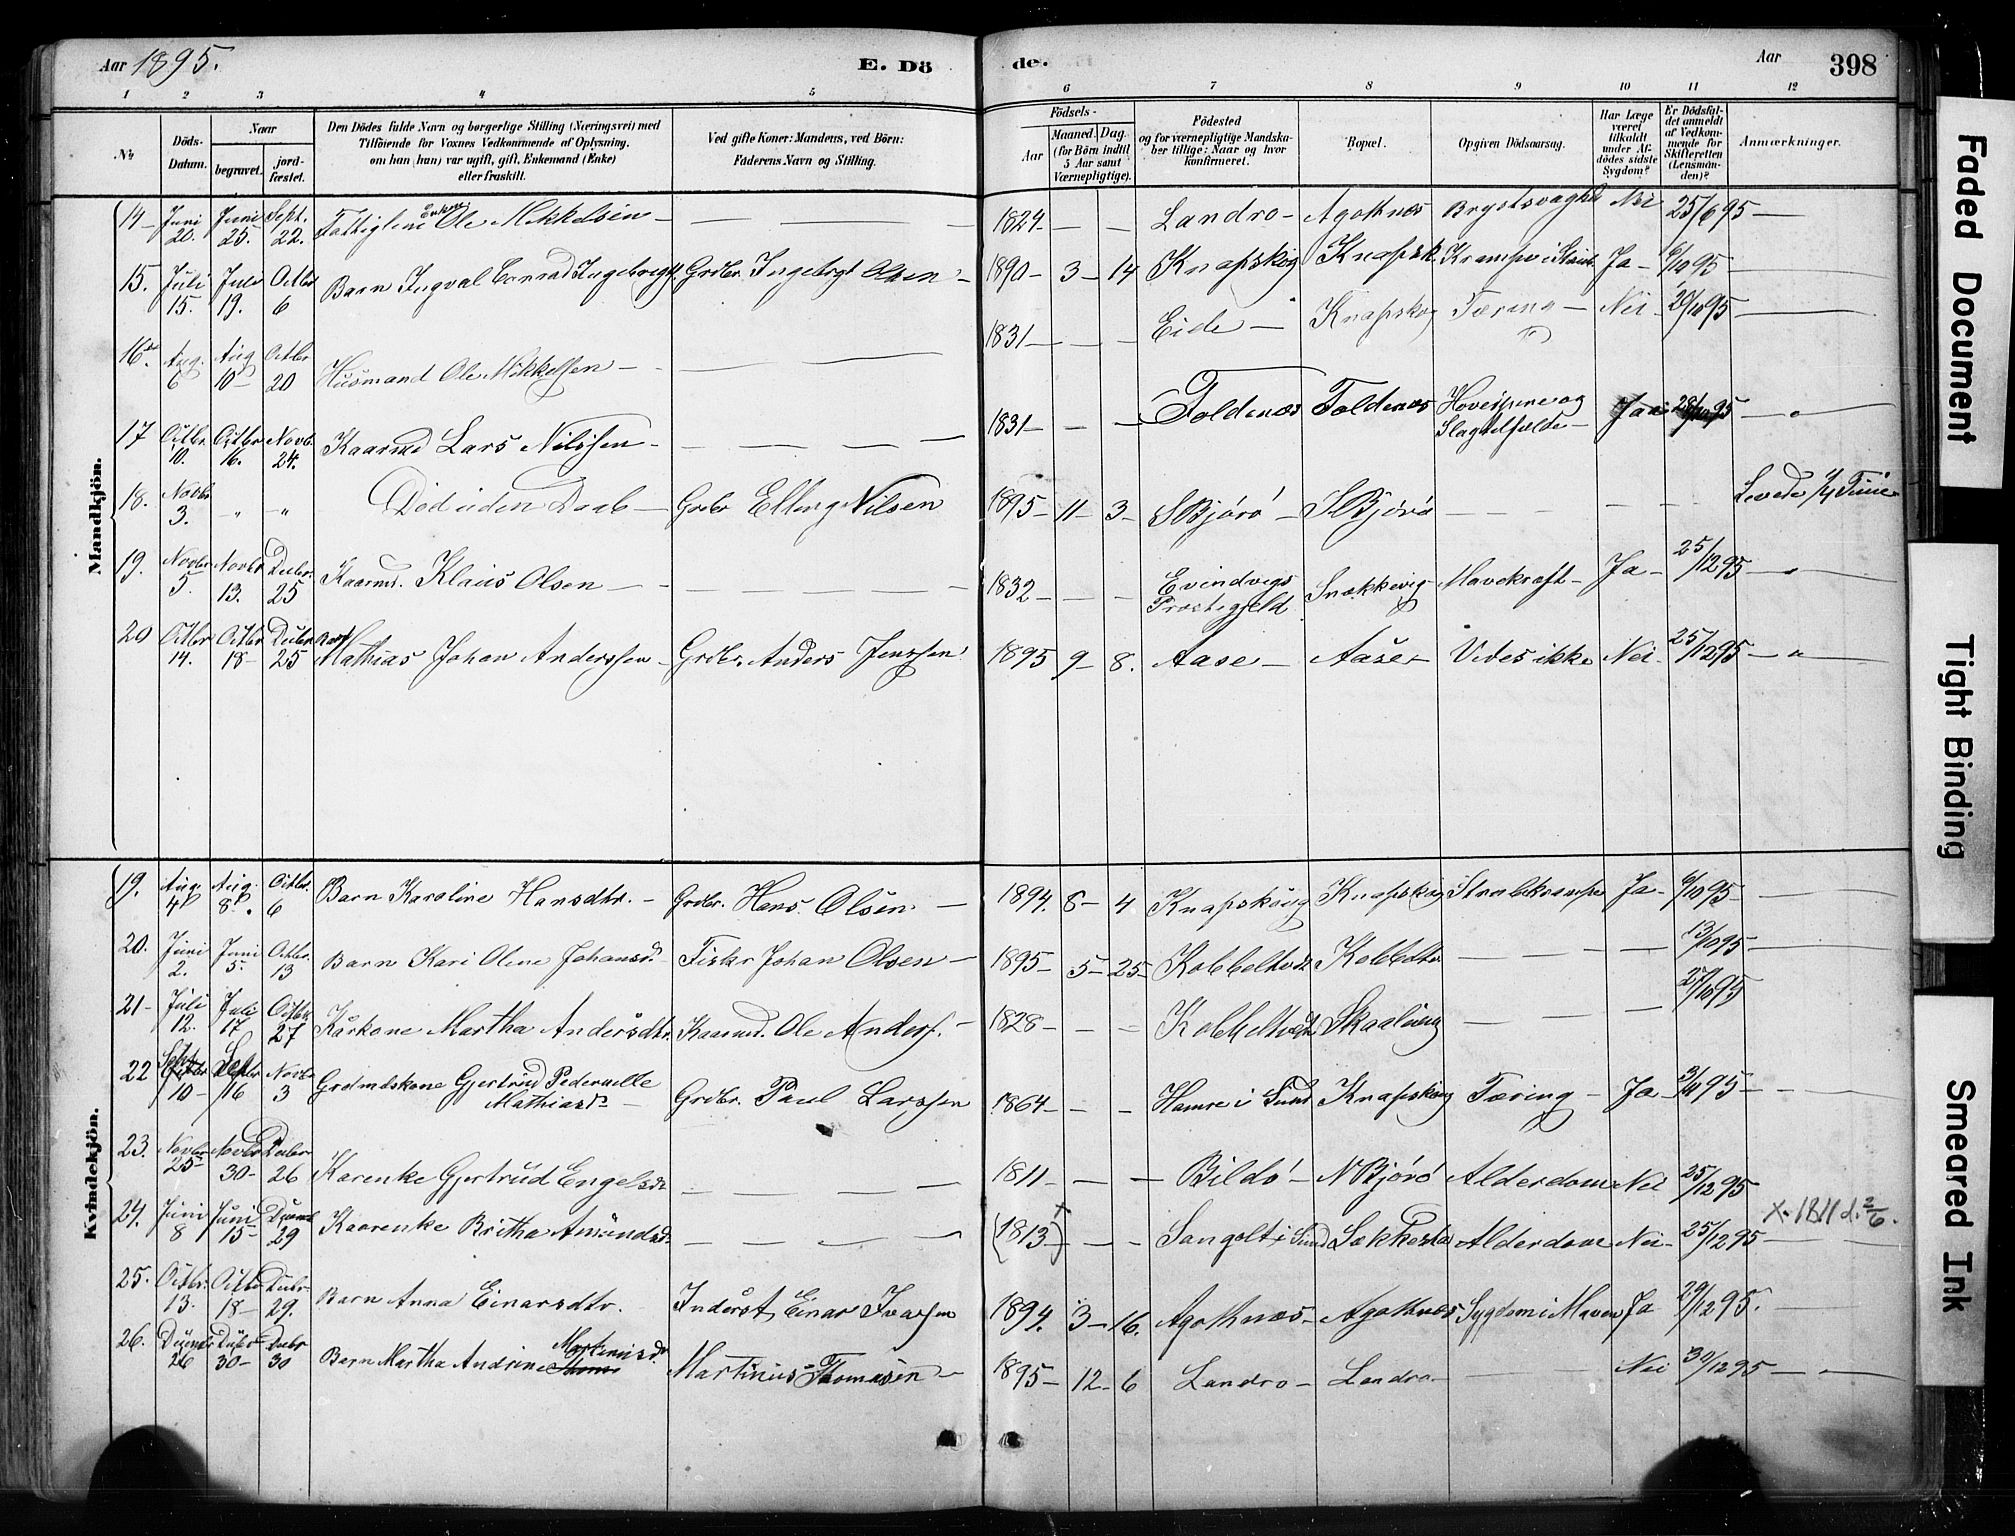 Aar 1895.
E. Dö
de.
Aar
398
1 2 3 4 5 6 7 8 9 10 11 12
Nr.
Döds-Datum.
Naar
begravet.
jord-fæstet.
Den Dödes fulde Navn og borgerlige Stilling (Næringsvei) med
Tilföiende for Voxnes Vedkommende af Oplysning.
om han (hun) var ugift, gift, Enkemand (Enke)
eller fraskilt.
Ved gifte Koner: Mandens, ved Börn:
Faderens Navn og Stilling.
Födsels-
Aar
Maaned.
Dag.
(for Börn indtil
5 Aar samt
Værnepligtige).
Födested
og for værnepligtige Mandska-
ber tillige: Naar og hvor
konfirmeret.
Bopæl.
Opgiven Dödsaarsag.
Har Læge
været
tilkaldt
under Af-
dödes sidste
Sygdom?
Er Dödsfal-
det anmeldt
af Vedkom-
mende for
Skifteretten
(Lensman-
den)?
Anmærkninger.
Mandkjön.
14 Juni 20. Juni 25. Sept. 22. Ole Mikkelsen — 1824 — — Landro — Agotnæs Nei 25/6 95 —
15. Juli 15. Juli 19. Octbr 6 Barn Ingval Conrad Grdbr. Ingebrigt Olsen — 1890 — 3 — 14 Knapskog Knapsk. Krampe i Ja — 6/10 95 —
16. Aug. 6 Aug 10 — Octbr 20 Husmand Ole Mikkelsen — 1831 — — Eide — Knapskog Tæring — Nei — 20/10 95 —
17 Octbr. 10. Octbr 16. Novb. 24. Kaarmd Lars Nilssen — 1831 — — Foldenæs Foldenæs og 28/10 95 —
18. Novbr 3. " " Död uden Daab — Grdbr Elling Nilsen 1895 — 11 — 3 — S Bjórö — S Bjórö — — — Levede 1/4 Time
19. Novbr 5. Novbr 13. Decbr. 25 Kaarmd. Klaus Olsen — 1832 — — Evindvigs Præstegjeld Snækkevig Mavekræft — Ja — 25/12 95 —
20 Octbr 14. Octbr 18 — Decbr 25 Barn Mathias Johan Anderssen — Grdbr. Anders Jenssen 1895 9 — 8. Aase — Aase — Vides ikke Nei — 25/12 95 — " —
Kvindekjön.
19. Aug. 4 Aug. 8 Octbr. 6 Barn Karoline Hansdtr. — Grdbr. Hans Olsen — 1894. 8 — 4 Knapskog Knapskog Strubekrampe Ja — 6/10 95 —
20. Juni 2. Juni 5. Octbr. 13 Barn Kari Oline Johansd. Fisker Johan Olsen — 1895 — 5 — 25 — — 13/10 95 —
21 — Juli 12. Juli 17 Octbr 27 Kårkone Martha Andersdtr. Kaarmd. Ole Anders. — 1828 — — Skaalvig — — 27/10 95
22 Sept 10 — 16 Novbr 3 Grdmdskone Gjertrud Pedernille Mathiasd. — Grdbr. Paul Larssen 1864 — — Hamre i Sund Knapskog Tæring — Ja — 3/11 95 —
23. Novbr 25 Novbr 30 — Decbr 26 Karenke Gjertrud Engelsd. — — 1811 — — Bildö — N Bjórö Alderdom Nei 25/12 95
24. Juni 8 Juni 15 — 29 Kaarenke Britha Amundsd. — — (1813) x — — Sangolt i Sund Lokkesta Alderdom Nei — 25/12 95 — x. 1811 d. 2/6.
25. Octbr. 13. Octbr 18 — Decbr. 29. Barn Anna Einarsdtr. Inderst Einar Ivarsen 1894. 3 — 16. Agotnæs — Agotnæs Sygdom i Maven Ja 29/12 95. —
26. 26 30 — Decbr 30 Barn Martha Andrine Martinusd. Martinus Thomasen — 1895 — 12 — 6 Landro — Landro — Nei 30/12 95 —
Faded Document
Tight Binding
Smeared Ink